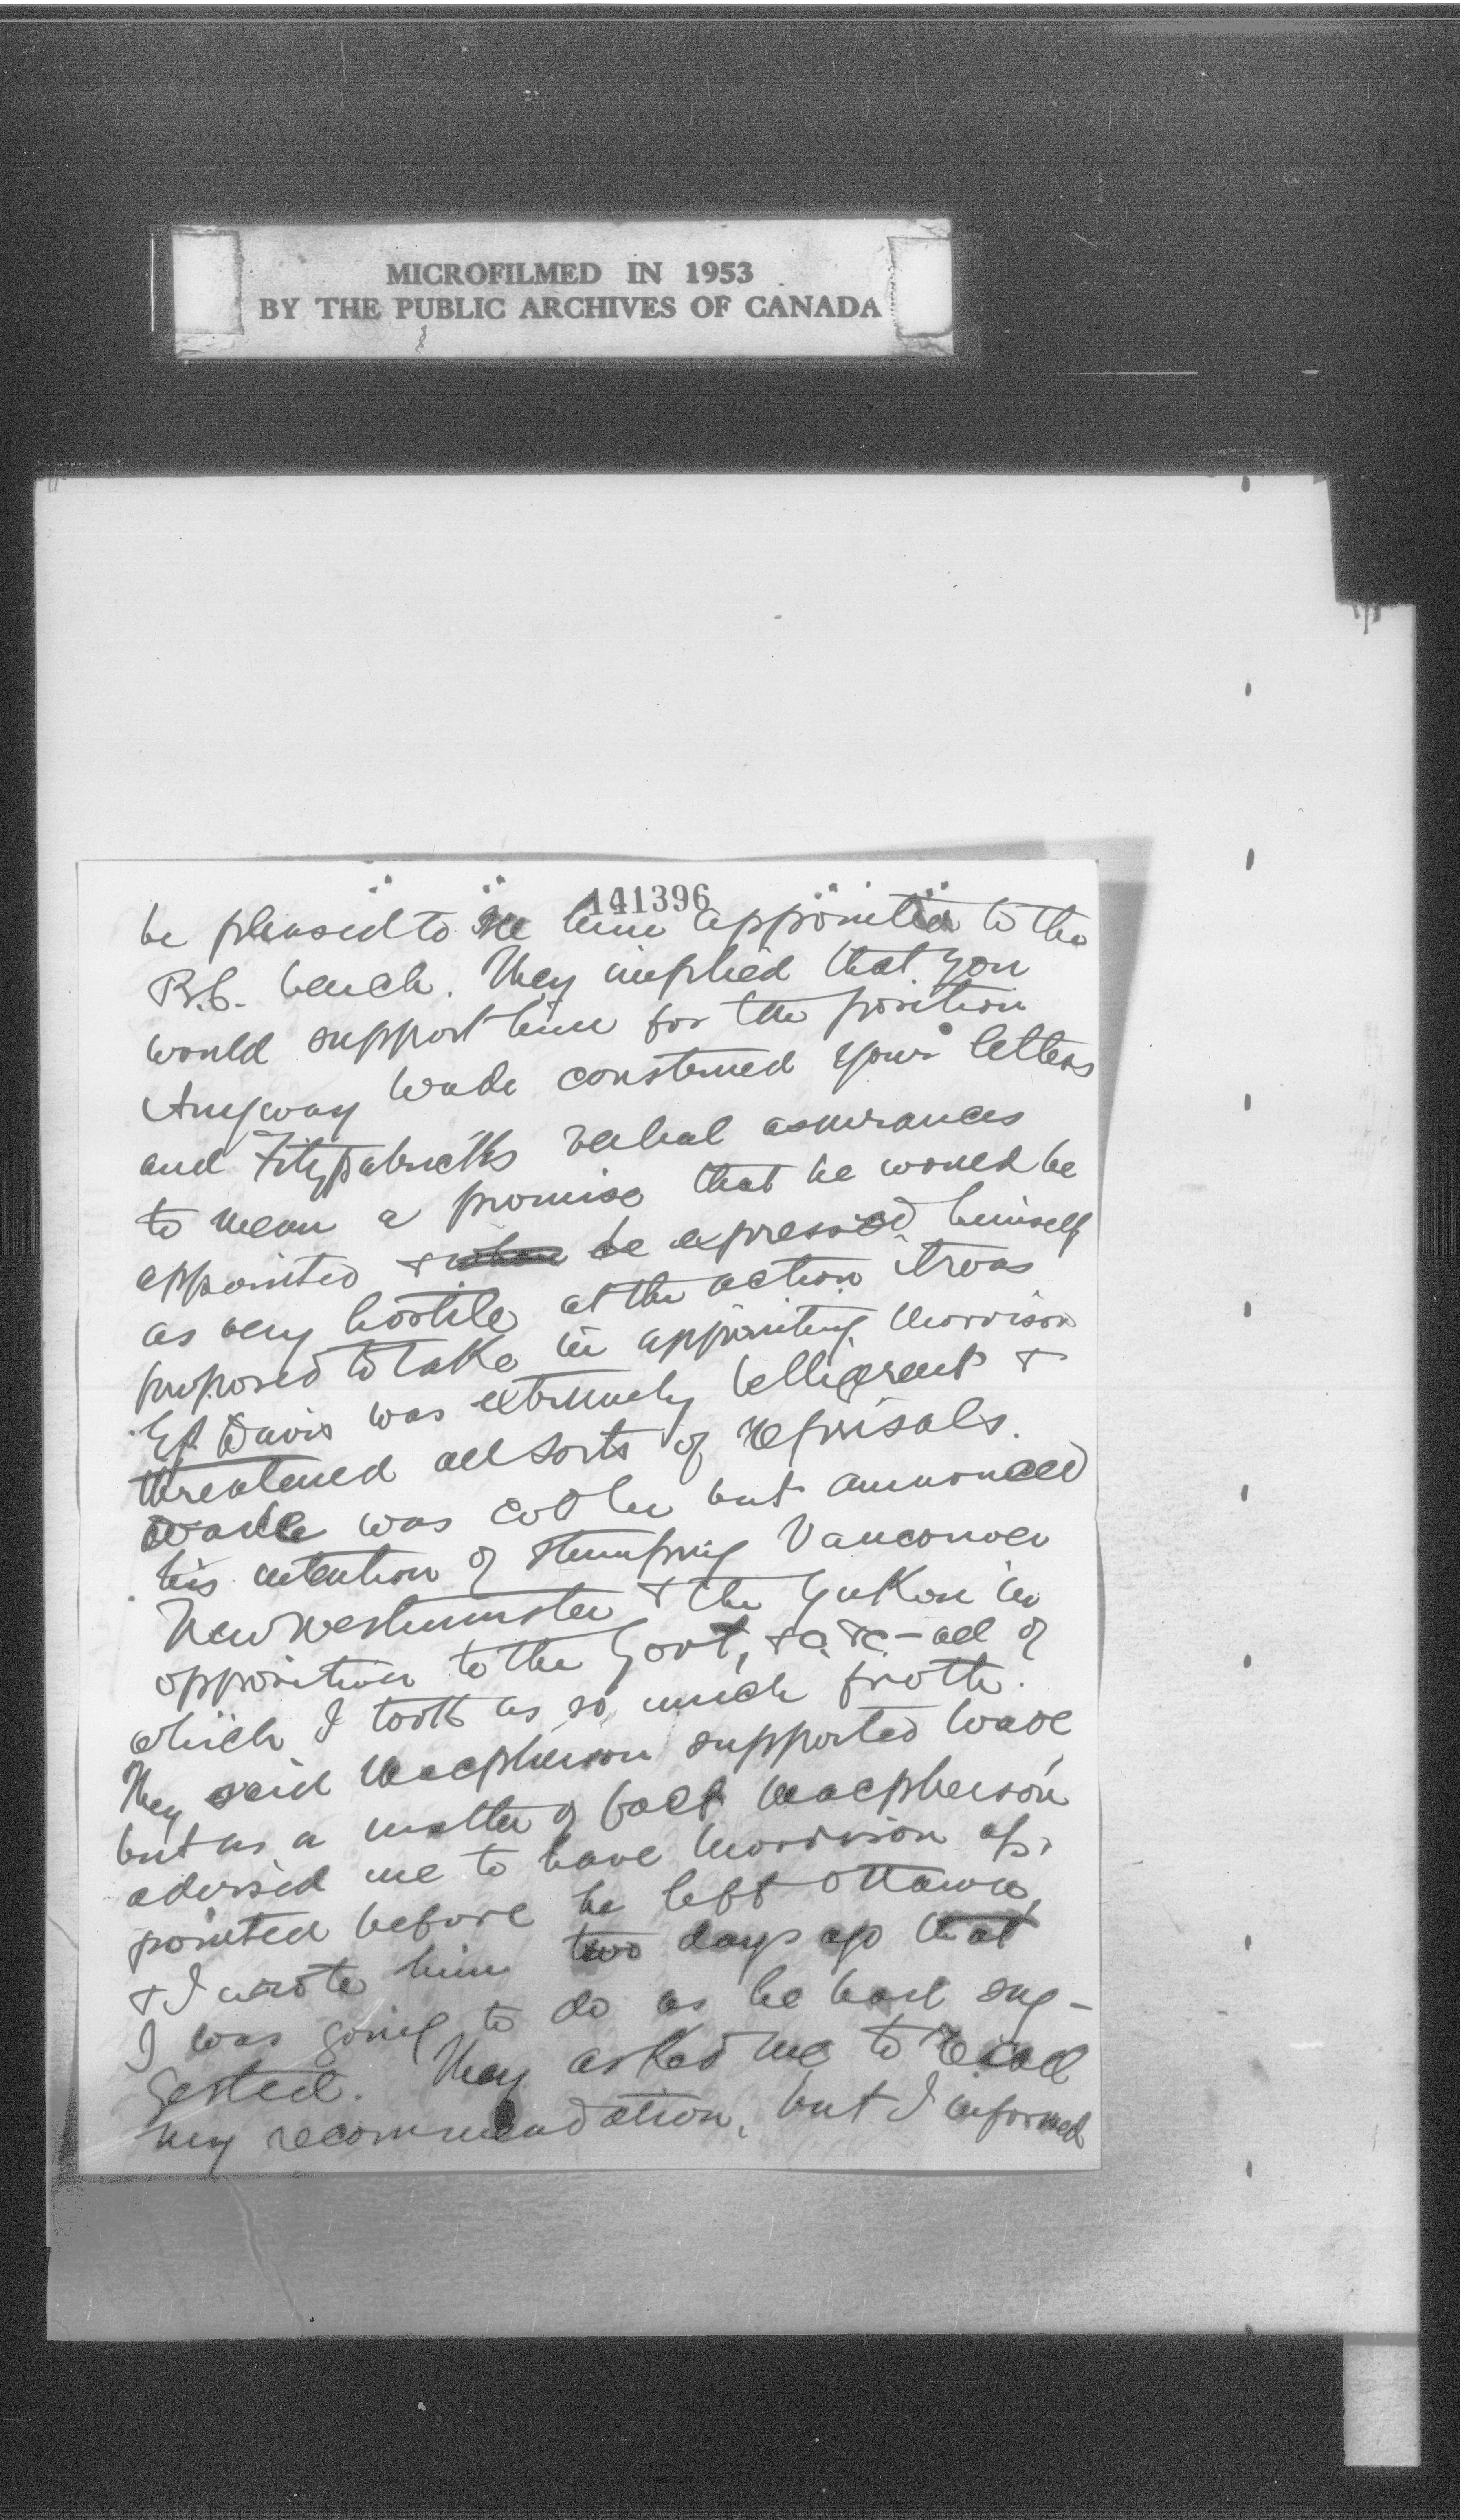 MICROFILMED IN 1953
BY THE PUBLIC ARCHIVES OF CANADA
141396
be pleased to see him appointed to the
B.C. bench. They implied that you
would support him for the position
Anyway Wade construed your letters
and Fitzpatrick's verbal assurances
to mean a promise that he would be
appointed & he expressed himself
as very hostile at the action it was
proposed to take in appointing Morrison
E.P. Davis was extremely belligerent &
threatened all sorts of reprisals.
Wade was cooler but announced
his intention of stumping Vancouver
New Westminster & the Yukon in
opposition to the Govt, &c. &c - all of
which I took as so much froth.
They said Macpherson supported Wade
but as a matter of fact Macpherson
advised me to have Morrison ap-
pointed before he left Ottawa,
& I wrote him two days ago that
I was going to do as he had sug-
gested. They asked me to recall
my recommendation, but I informed